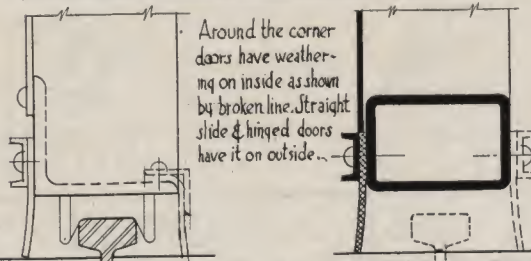 Around the corner
doors have weather-
ing on inside as shown
by broken line. Straight
slide & hinged doors
have it on outside..